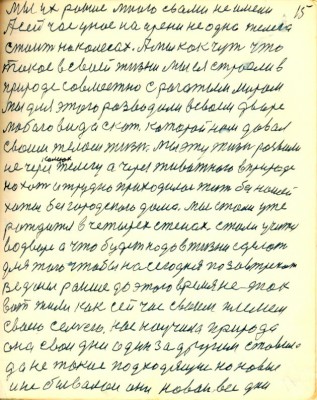 15
мы их раньше много с вами не имели
А сейчас у нас на
стоит на колесах. А мы как чут что
такое в своей жизни мы ея строили в
природе совместно с рогатым миром
мы для этого разводили в своем дворе
любого вида скот которой нам давал
своим телом жизнь. Мы эту жизнь развили
не через телегу а через животного в природе
но хот и трудно приходилос жит без нашей
хаты без городского дома. Мы стали уже
рождатся в четырех стенах стали учится
во дворе а что будет надо в жизни сделат
для того чтобы на сегодня позавтракат
Ведь мы раньше до этого время не так
вот жили как сейчас своим племем
своею семьею. Нас научила природа
она свои дни один за другим ставила
да не такие подходящие но новые
и не бывалои они новои все дни